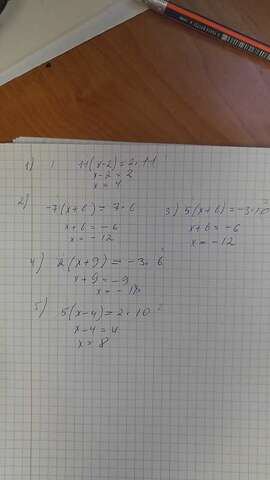 1) 11(x-2)=2·11
x-2=2
x=4
2) -7(x+6)=7·6
x+6=-6
x=-12
3) 5(x+6)=-3·10
x+6=-6
x=-12
4) 2(x+9)=-3·6
x+9=-9
x=-18
5) 5(x-4)=2·10
x-4=4
x=8